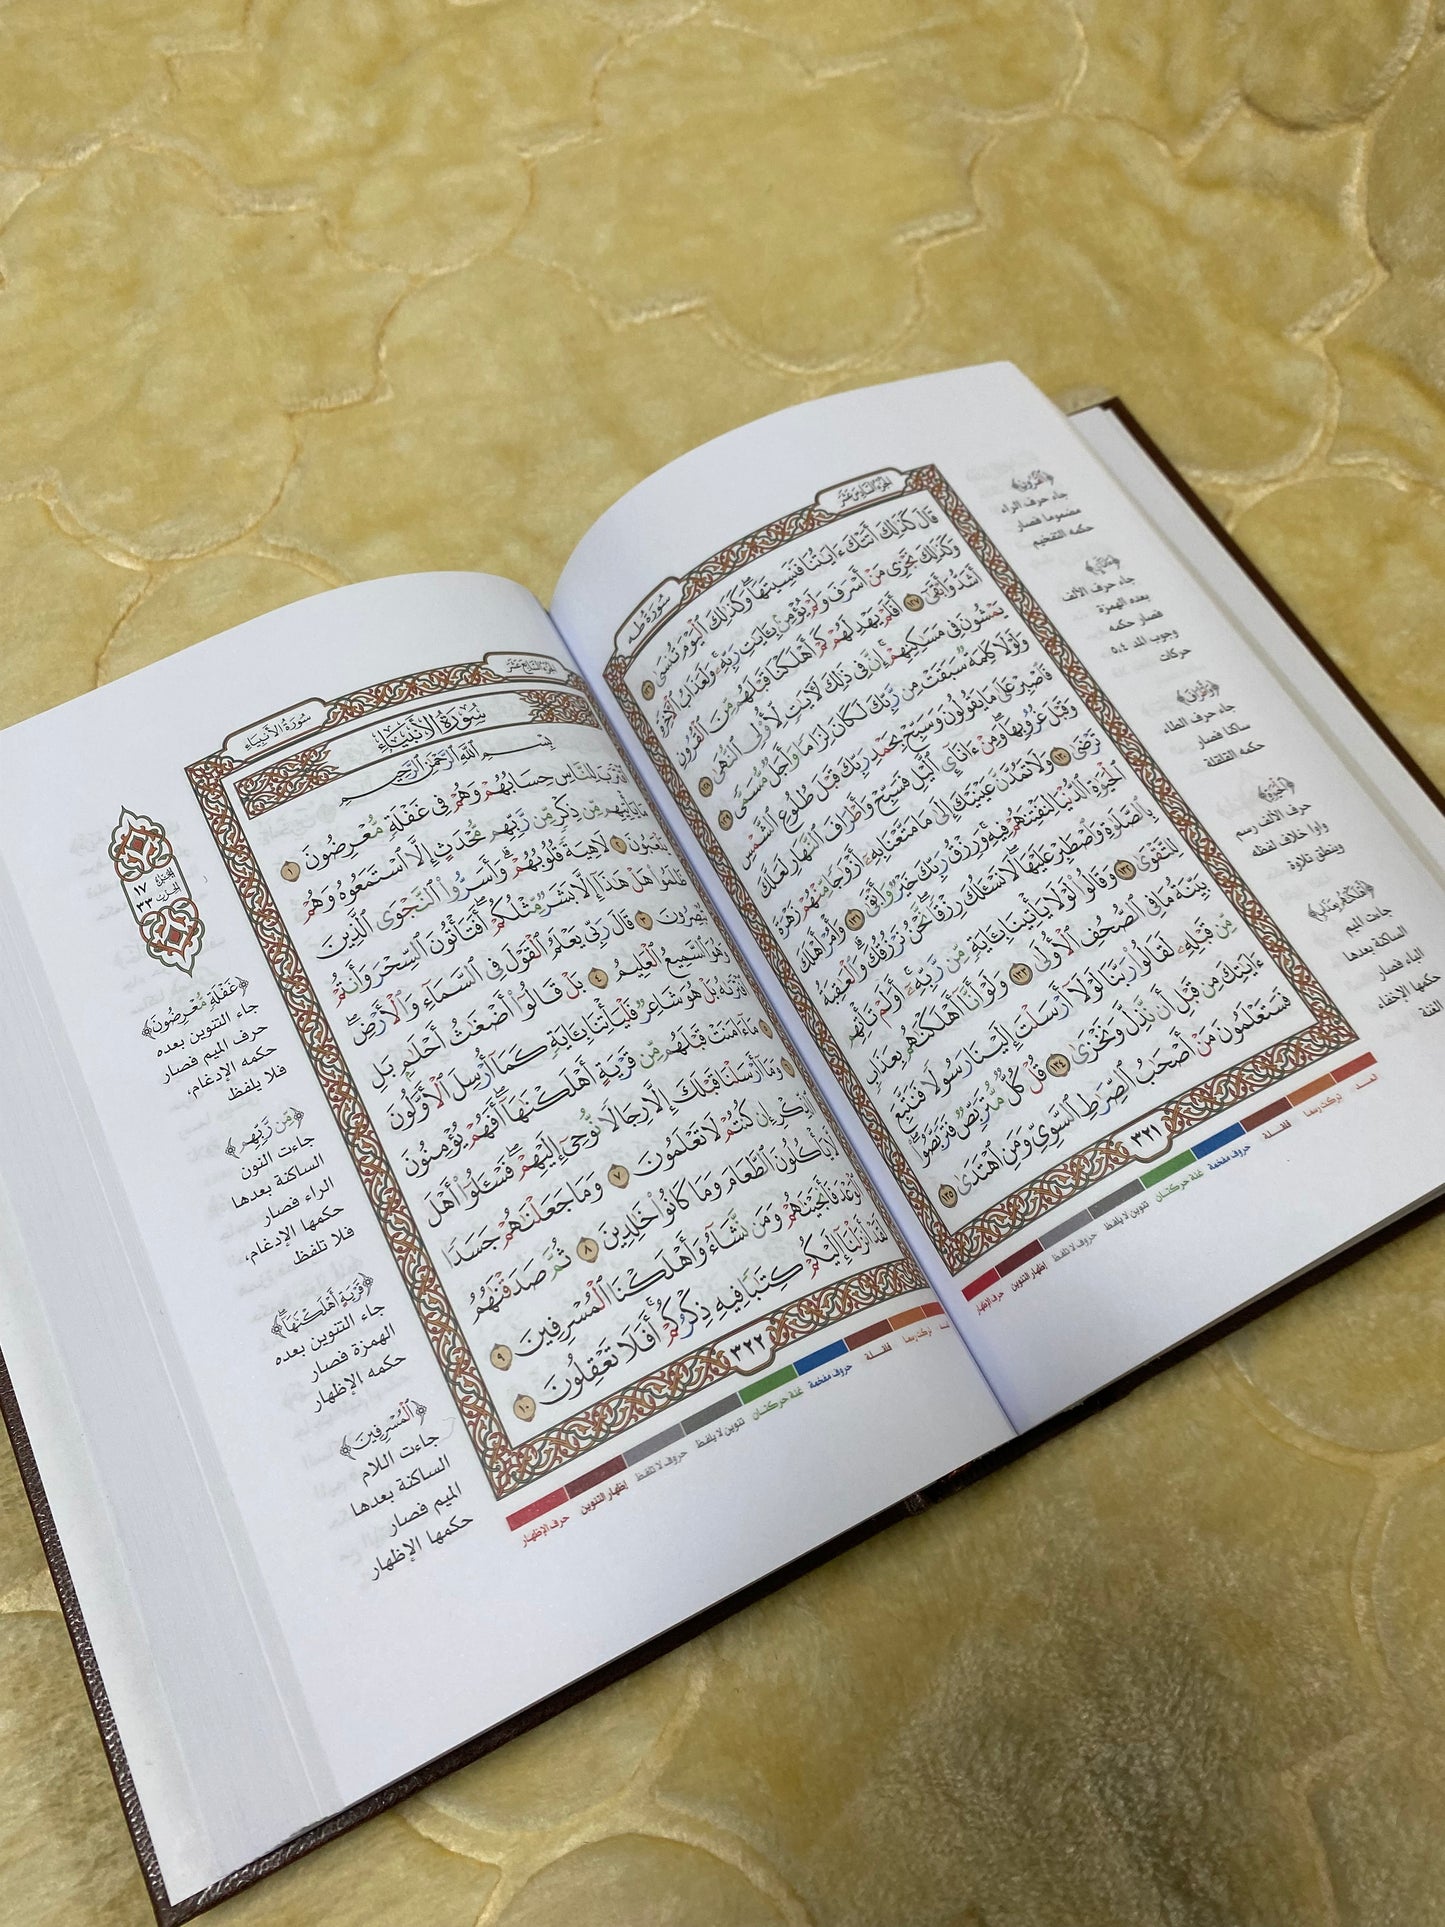 الجزء السادس عشر
سورة طه
قَالَ كَذَٰلِكَ أَتَتۡكَ ءَايَٰتُنَا فَنَسِيتَهَاۖ وَكَذَٰلِكَ ٱلۡيَوۡمَ تُنسَىٰ ١٢٦
وَكَذَٰلِكَ نَجۡزِي مَنۡ أَسۡرَفَ وَلَمۡ يُؤۡمِنۢ بِـَٔايَٰتِ رَبِّهِۦۚ وَلَعَذَابُ ٱلۡأٓخِرَةِ
أَشَدُّ وَأَبۡقَىٰٓ ١٢٧ أَفَلَمۡ يَهۡدِ لَهُمۡ كَمۡ أَهۡلَكۡنَا قَبۡلَهُم مِّنَ ٱلۡقُرُونِ
يَمۡشُونَ فِي مَسَٰكِنِهِمۡۚ إِنَّ فِي ذَٰلِكَ لَأٓيَٰتٖ لِّأُوْلِي ٱلنُّهَىٰ ١٢٨
وَلَوۡلَا كَلِمَةٞ سَبَقَتۡ مِن رَّبِّكَ لَكَانَ لِزَامٗا وَأَجَلٞ مُّسَمّٗى ١٢٩
فَٱصۡبِرۡ عَلَىٰ مَا يَقُولُونَ وَسَبِّحۡ بِحَمۡدِ رَبِّكَ قَبۡلَ طُلُوعِ ٱلشَّمۡسِ
وَقَبۡلَ غُرُوبِهَاۖ وَمِنۡ ءَانَآيِٕ ٱلَّيۡلِ فَسَبِّحۡ وَأَطۡرَافَ ٱلنَّهَارِ لَعَلَّكَ
تَرۡضَىٰ ١٣٠ وَلَا تَمُدَّنَّ عَيۡنَيۡكَ إِلَىٰ مَا مَتَّعۡنَا بِهِۦٓ أَزۡوَٰجٗا مِّنۡهُمۡ زَهۡرَةَ
ٱلۡحَيَوٰةِ ٱلدُّنۡيَا لِنَفۡتِنَهُمۡ فِيهِۚ وَرِزۡقُ رَبِّكَ خَيۡرٞ وَأَبۡقَىٰ ١٣١ وَأۡمُرۡ أَهۡلَكَ
بِٱلصَّلَوٰةِ وَٱصۡطَبِرۡ عَلَيۡهَاۖ لَا نَسۡـَٔلُكَ رِزۡقٗاۖ نَّحۡنُ نَرۡزُقُكَۗ وَٱلۡعَٰقِبَةُ
لِلتَّقۡوَىٰ ١٣٢ وَقَالُواْ لَوۡلَا يَأۡتِينَا بِـَٔايَةٖ مِّن رَّبِّهِۦٓۚ أَوَلَمۡ تَأۡتِهِم
بَيِّنَةُ مَا فِي ٱلصُّحُفِ ٱلۡأُولَىٰ ١٣٣ وَلَوۡ أَنَّآ أَهۡلَكۡنَٰهُم بِعَذَابٖ
مِّن قَبۡلِهِۦ لَقَالُواْ رَبَّنَا لَوۡلَآ أَرۡسَلۡتَ إِلَيۡنَا رَسُولٗا فَنَتَّبِعَ
ءَايَٰتِكَ مِن قَبۡلِ أَن نَّذِلَّ وَنَخۡزَىٰ ١٣٤ قُلۡ كُلّٞ مُّتَرَبِّصٞ فَتَرَبَّصُواْۖ
فَسَتَعۡلَمُونَ مَنۡ أَصۡحَٰبُ ٱلصِّرَٰطِ ٱلسَّوِيِّ وَمَنِ ٱهۡتَدَىٰ ١٣٥
٣٢١
جاء حرف الراء
مضموما فصار
حكمه التفخيم
جاء حرف الألف
بعده الهمزة
فصار حكمه
وجوب المد ٥،٤
حركات
جاء حرف الطاء
ساكنا فصار
حكمه القلقلة
حرف الألف رسم
واوا خلاف لفظه
وينطق تلاوة
جاءت الميم
الساكنة بعدها
الباء فصار
حكمها الإخفاء
لغنة
قلقلة
حروف مفخمة
غنة حركتان
تنوين لا يلفظ
حروف لا تلفظ
إظهار التنوين
حرف الإظهار
الجزء السابع عشر
سورة الأنبياء
سورة الأنبياء
بِسۡمِ ٱللَّهِ ٱلرَّحۡمَٰنِ ٱلرَّحِيمِ
ٱقۡتَرَبَ لِلنَّاسِ حِسَابُهُمۡ وَهُمۡ فِي غَفۡلَةٖ مُّعۡرِضُونَ ١
مَا يَأۡتِيهِم مِّن ذِكۡرٖ مِّن رَّبِّهِم مُّحۡدَثٍ إِلَّا ٱسۡتَمَعُوهُ وَهُمۡ
يَلۡعَبُونَ ٢ لَاهِيَةٗ قُلُوبُهُمۡۗ وَأَسَرُّواْ ٱلنَّجۡوَى ٱلَّذِينَ
ظَلَمُواْ هَلۡ هَٰذَآ إِلَّا بَشَرٞ مِّثۡلُكُمۡۖ أَفَتَأۡتُونَ ٱلسِّحۡرَ وَأَنتُمۡ
تُبۡصِرُونَ ٣ قَالَ رَبِّي يَعۡلَمُ ٱلۡقَوۡلَ فِي ٱلسَّمَآءِ وَٱلۡأَرۡضِۖ
وَهُوَ ٱلسَّمِيعُ ٱلۡعَلِيمُ ٤ بَلۡ قَالُوٓاْ أَضۡغَٰثُ أَحۡلَٰمِۭ بَلِ
ٱفۡتَرَىٰهُ بَلۡ هُوَ شَاعِرٞ فَلۡيَأۡتِنَا بِـَٔايَةٖ كَمَآ أُرۡسِلَ ٱلۡأَوَّلُونَ
٥ مَآ ءَامَنَتۡ قَبۡلَهُم مِّن قَرۡيَةٍ أَهۡلَكۡنَٰهَآۖ أَفَهُمۡ يُؤۡمِنُونَ
٦ وَمَآ أَرۡسَلۡنَا قَبۡلَكَ إِلَّا رِجَالٗا نُّوحِيٓ إِلَيۡهِمۡۖ فَسۡـَٔلُوٓاْ أَهۡلَ
ٱلذِّكۡرِ إِن كُنتُمۡ لَا تَعۡلَمُونَ ٧ وَمَا جَعَلۡنَٰهُمۡ جَسَدٗا
لَّا يَأۡكُلُونَ ٱلطَّعَامَ وَمَا كَانُواْ خَٰلِدِينَ ٨ ثُمَّ صَدَقۡنَٰهُمُ
ٱلۡوَعۡدَ فَأَنجَيۡنَٰهُمۡ وَمَن نَّشَآءُ وَأَهۡلَكۡنَا ٱلۡمُسۡرِفِينَ ٩
لَقَدۡ أَنزَلۡنَآ إِلَيۡكُمۡ كِتَٰبٗا فِيهِ ذِكۡرُكُمۡۚ أَفَلَا تَعۡقِلُونَ ١٠
٣٢٢
الجزء
١٧
الحزب
٣٣
﴿غَفۡلَةٖ مُّعۡرِضُونَ﴾
جاء التنوين بعده
حرف الميم فصار
حكمه الإدغام،
فلا يلفظ
﴿مِّن رَّبِّهِم﴾
جاءت النون
الساكنة بعدها
الراء فصار
حكمها الإدغام،
فلا تلفظ
﴿قَرۡيَةٍ أَهۡلَكۡنَٰهَآۖ﴾
جاء التنوين بعده
الهمزة فصار
حكمه الإظهار
﴿ٱلۡمُسۡرِفِينَ﴾
جاءت اللام
الساكنة بعدها
الميم فصار
حكمها الإظهار
قلقلة
حروف مفخمة
غنة حركتان
تنوين لا يلفظ
حروف لا تلفظ
إظهار التنوين
حرف الإظهار